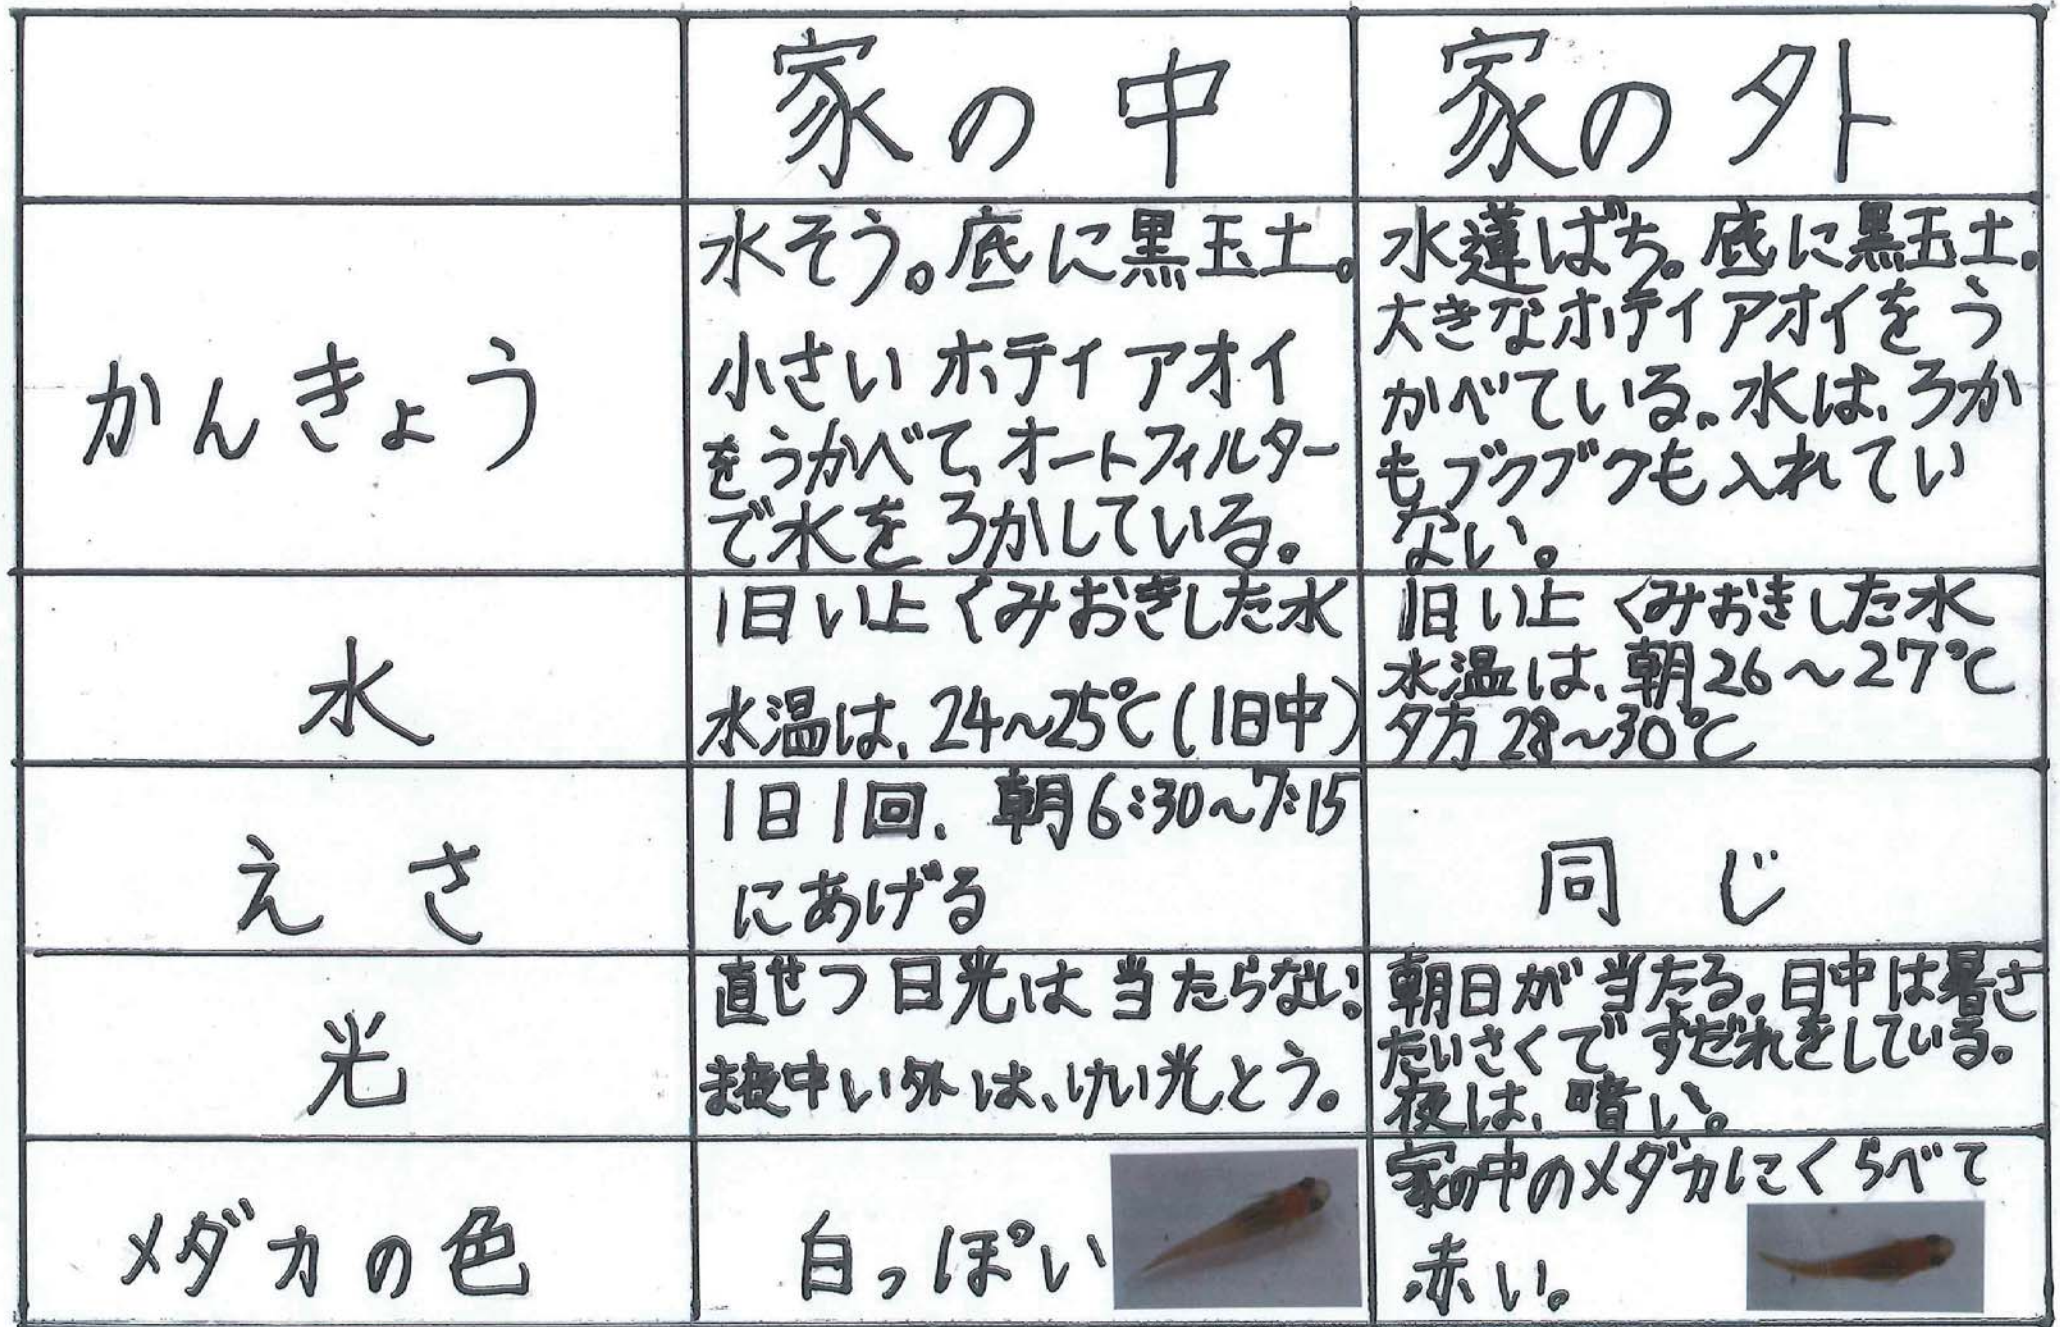 家の中
家の外
かんきょう
水そう。底に黒玉土。
小さいホテイアオイ
をうかべて、オートフィルター
で水をろかしている。
水蓮ばち。底に黒玉土。
大きなホテイアオイをう
かべている。水は、ろか
もブクブクも入れてい
ない。
水
1日い上くみおきした水
水温は、24~25℃(1日中)
1日い上くみおきした水
水温は、朝26~27℃
夕方28~30℃
えさ
1日1回、朝6:30~7:15
にあげる
同じ
光
直せつ日光は当たらない。
ま夜中い外は、けい光とう。
朝日が当たる。日中は暑さ
たいさくですだれをしている。
夜は、暗い。
メダカの色
白っぽい
家の中のメダカにくらべて
赤い。